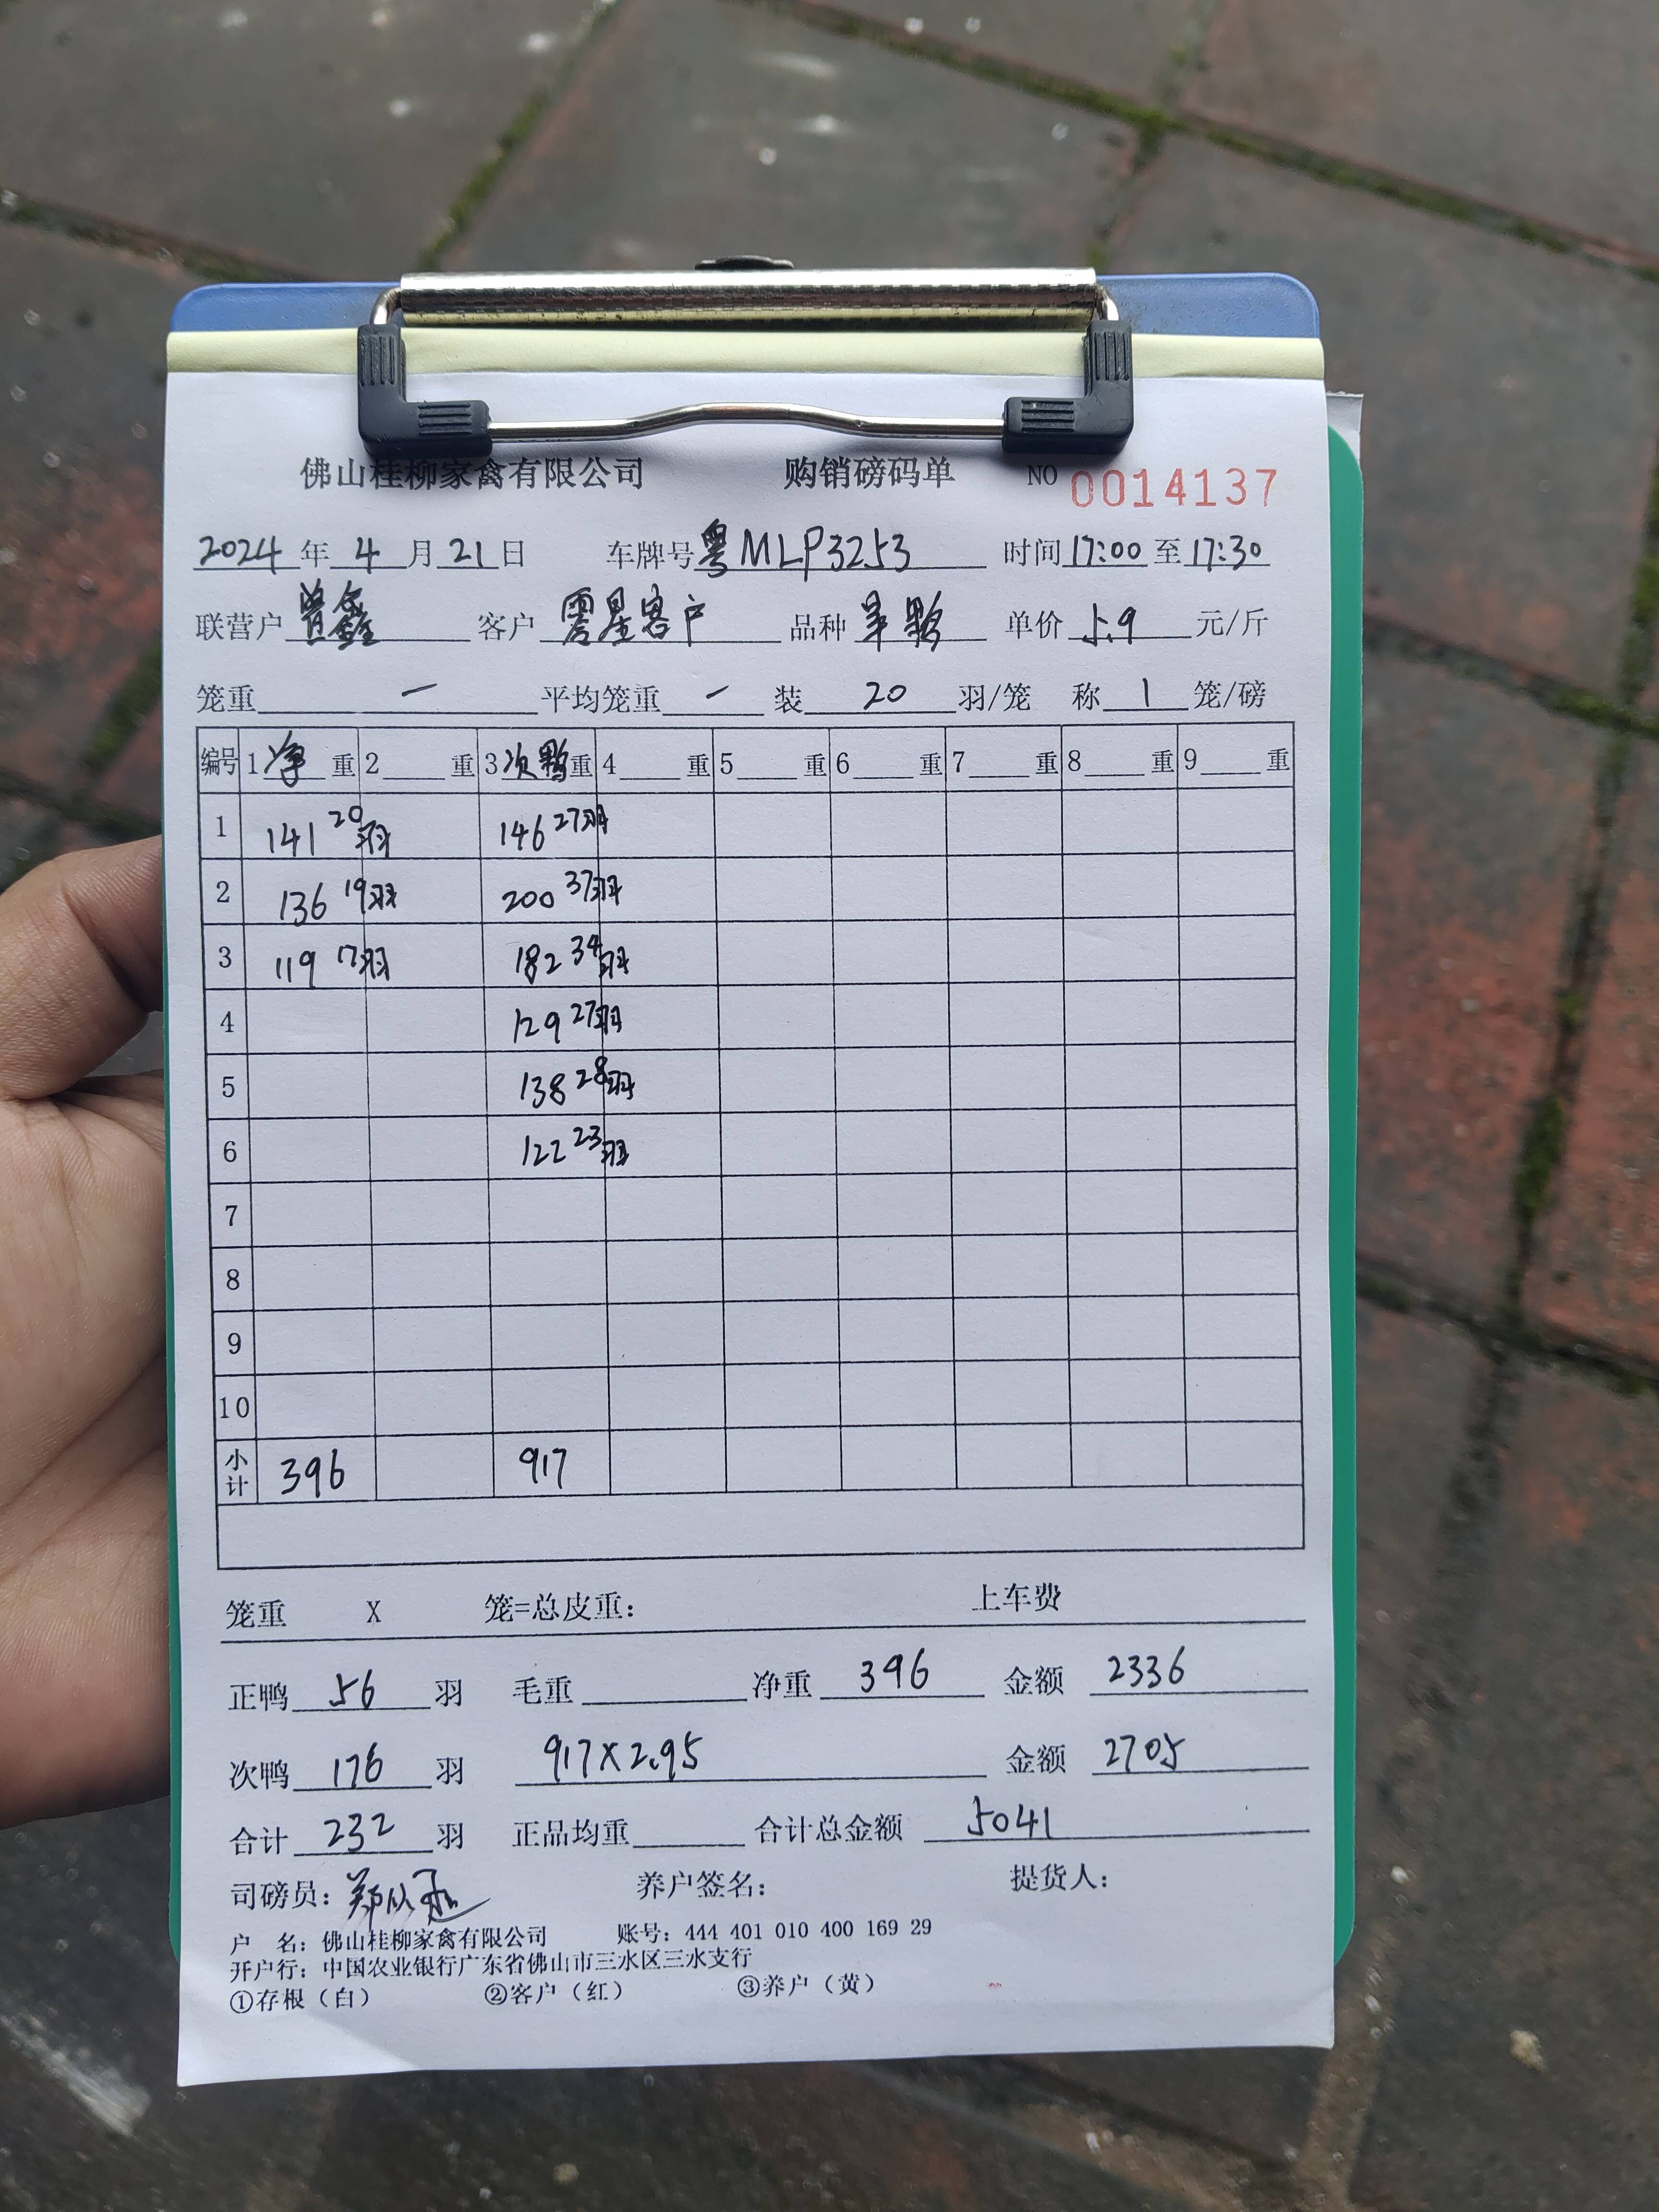 佛山桂柳家禽有限公司 购销磅码单 NO 0014137
2024 年 4 月 21 日 车牌号 粤MLP3253 时间 17:00 至 17:30
联营户 曾鑫 客户 零星客户 品种 单价 5.9 元/斤
笼重 一 平均笼重 一 装 20 羽/笼 称 1 笼/磅
编号 1 净 重 2 重 3 次鸭 重 4 重 5 重 6 重 7 重 8 重 9 重
1 141 20羽 146 27羽
2 136 19羽 200 37羽
3 119 17羽 182 34羽
4 129 27羽
5 138 28羽
6 122 23羽
7
8
9
10
小计 396 917
笼重 X 笼=总皮重: 上车费
正鸭 56 羽 毛重 净重 396 金额 2336
次鸭 176 羽 917X2.95 金额 2705
合计 232 羽 正品均重 合计总金额 5041
司磅员: 养户签名: 提货人:
户 名: 佛山桂柳家禽有限公司 账号: 444 401 010 400 169 29
开户行: 中国农业银行广东省佛山市三水区三水支行
①存根（白） ②客户（红） ③养户（黄）